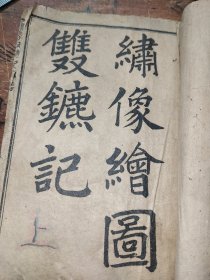 繡像繪圖
雙鑣記
上